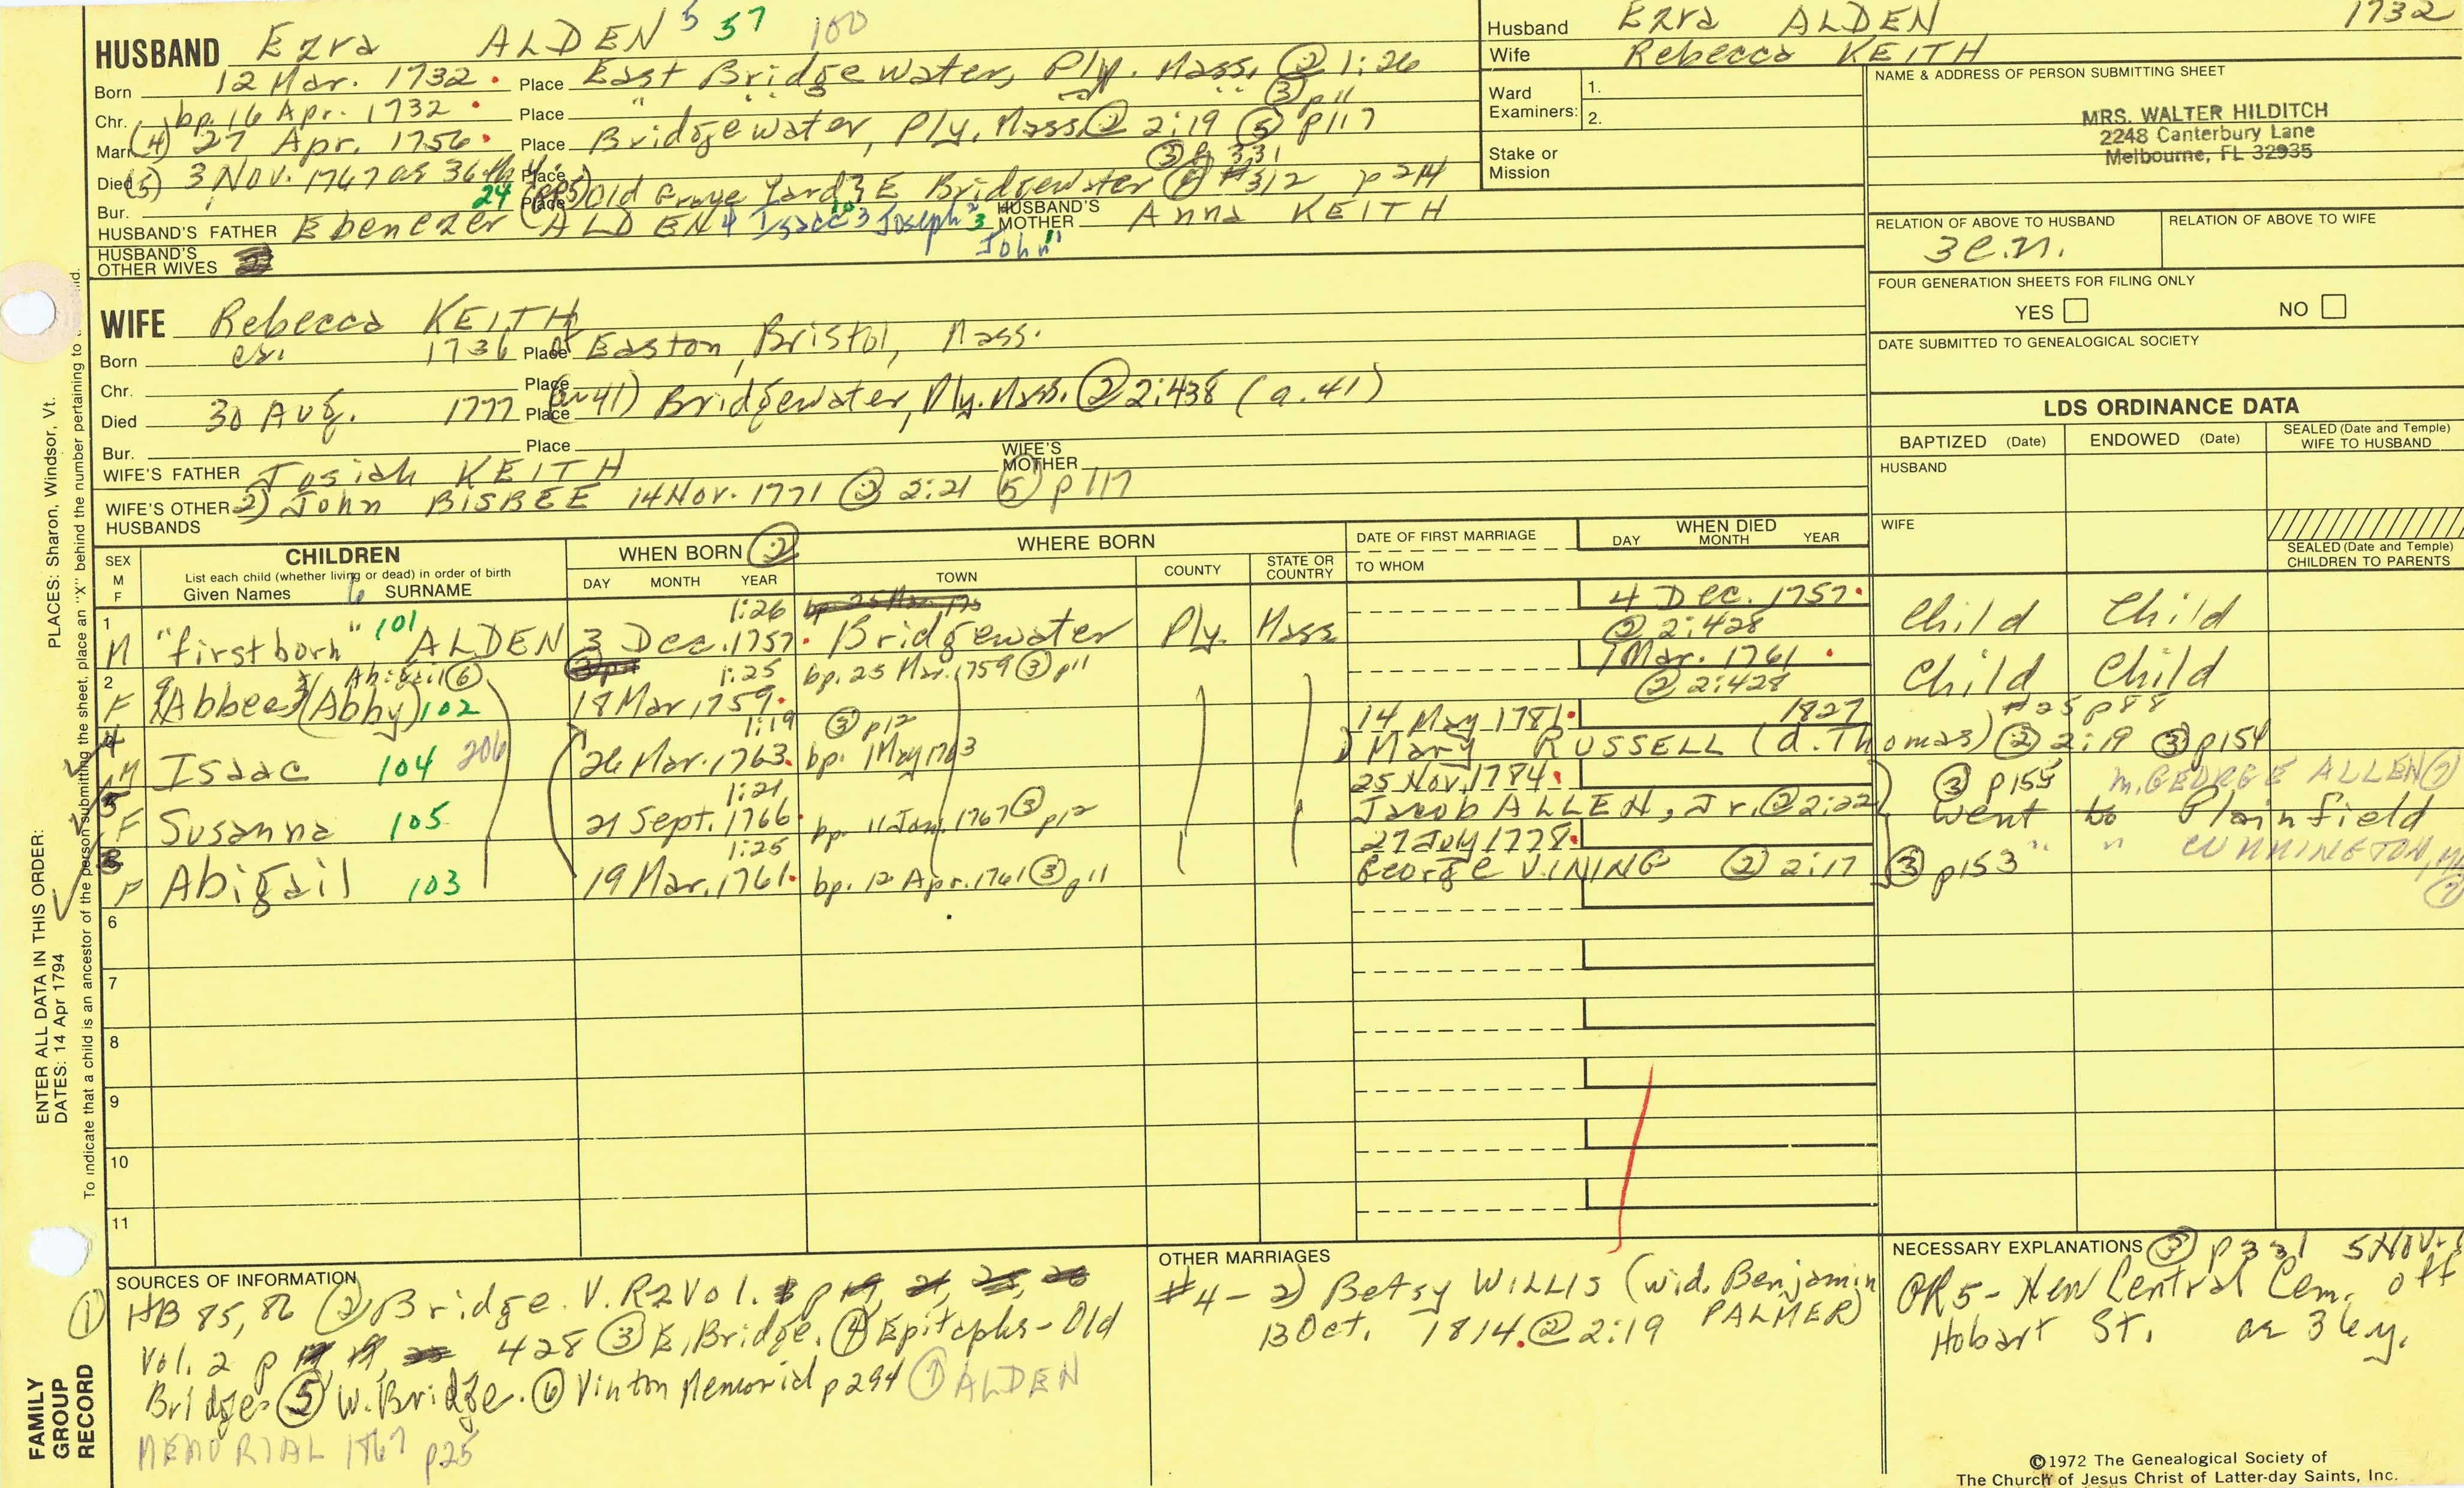 HUSBAND Ezra ALDEN 5 57 100
Born 12 Mar. 1732 Place East Bridgewater, Ply. Mass. ② 1:26
Chr. bp. 16 Apr. 1732 Place " " " ③ p11
Marr. (4) 27 Apr. 1756 Place Bridgewater, Ply. Mass. ② 2:19 ⑤ p117
③ p 331
Died (5) 3 Nov. 1767 ae 36 Place Old Grave Yard E Bridgewater ④ #312 p 214
Bur. Place
24 10 3 11
HUSBAND'S FATHER Ebenezer ALDEN 4 Isaac 3 Joseph 2 John HUSBAND'S MOTHER Anna KEITH
HUSBAND'S OTHER WIVES
Husband Ezra ALDEN 1732
Wife Rebecca KEITH
Ward Examiners: 1.
2.
Stake or Mission
NAME & ADDRESS OF PERSON SUBMITTING SHEET
MRS. WALTER HILDITCH
2248 Canterbury Lane
Melbourne, FL 32935
RELATION OF ABOVE TO HUSBAND RELATION OF ABOVE TO WIFE
FOUR GENERATION SHEETS FOR FILING ONLY
YES NO
DATE SUBMITTED TO GENEALOGICAL SOCIETY
WIFE Rebecca KEITH
Born 1736 Place of Easton, Bristol, Mass.
Chr. Place
Died 30 Aug. 1777 Place Bridgewater, Ply. Mass. ② 2:438 (a. 41)
Bur. Place
WIFE'S FATHER Josiah KEITH WIFE'S MOTHER
WIFE'S OTHER HUSBANDS 2) John BISBEE 14 Nov. 1771 ② 2:21 ⑤ p 117
LDS ORDINANCE DATA
BAPTIZED (Date) ENDOWED (Date) SEALED (Date and Temple) WIFE TO HUSBAND
HUSBAND
WIFE
SEALED (Date and Temple) CHILDREN TO PARENTS
SEX M F CHILDREN WHEN BORN ② WHERE BORN DATE OF FIRST MARRIAGE WHEN DIED
List each child (whether living or dead) in order of birth
Given Names SURNAME DAY MONTH YEAR TOWN COUNTY STATE OR COUNTRY TO WHOM DAY MONTH YEAR
1:26 4 Dec. 1757
1 M "firstborn" 101 ALDEN 3 Dec. 1757 Bridgewater Ply. Mass ② 2:428 Child Child
Abigail ⑥ 1:25 bp. 25 Mar. 1759 ③ p11 Mar. 1761
2 F Abbee (Abby) 102 18 Mar 1759 ② 2:428 Child Child
1:19 ③ p12 14 May 1781 1827 p 88
4 M Isaac 104 206 26 Mar. 1763 bp. 1 May 1763 1) Mary RUSSELL (d. Thomas) ② 2:19 ③ p154
1:21 25 Nov. 1784 ③ p155 m. GEORGE ALLEN ⑦
5 F Susanna 105 21 Sept. 1766 bp. 11 Jan. 1767 ③ p12 Jacob ALLEN, Jr. ② 2:22 went to Plainfield
1:25 27 July 1778
3 F Abigail 103 19 Mar. 1761 bp. 12 Apr. 1761 ③ p11 George VINING ② 2:17 ③ p153 " " CUMMINGTON, MA ⑦
6
7
8
9
10
11
SOURCES OF INFORMATION
① HB 85, 86 ② Bridge. V.R. 2 Vol.
Vol. 2 p 428 ③ E. Bridge. ④ Epitaphs - Old
Bridge. ⑤ W. Bridge. ⑥ Vinton Memorial p 294 ⑦ ALDEN
MEMORIAL 1867 p25
OTHER MARRIAGES
#4 - 2) Betsy WILLIS (wid. Benjamin PALMER)
13 Oct. 1814. ② 2:19
NECESSARY EXPLANATIONS ③ p 331 5 Nov.
GR5 - New Central Cem. off
Hobart St. ae 36 y.
©1972 The Genealogical Society of
The Church of Jesus Christ of Latter-day Saints, Inc.
ENTER ALL DATA IN THIS ORDER:
DATES: 14 Apr 1794 PLACES: Sharon, Windsor, Vt.
To indicate that a child is an ancestor of the person submitting the sheet, place an "X" behind the number pertaining to
FAMILY GROUP RECORD